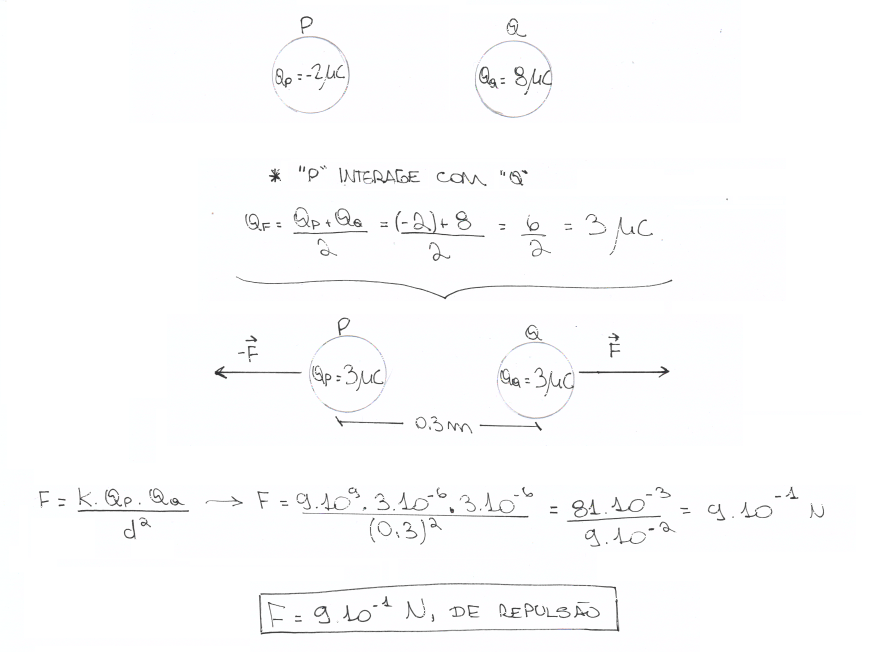 P Q
Qp = -2μC QQ = 8μC
* "P" INTERAGE COM "Q"
QF = Qp + QQ / 2 = (-2) + 8 / 2 = 6 / 2 = 3 μC
P Q
-F⃗ Qp = 3μC QQ = 3μC F⃗
0.3 m
F = K . Qp . QQ / d² → F = 9.10⁹ . 3.10⁻⁶ . 3.10⁻⁶ / (0,3)² = 81.10⁻³ / 9.10⁻² = 9.10⁻¹ N
F = 9.10⁻¹ N, DE REPULSÃO